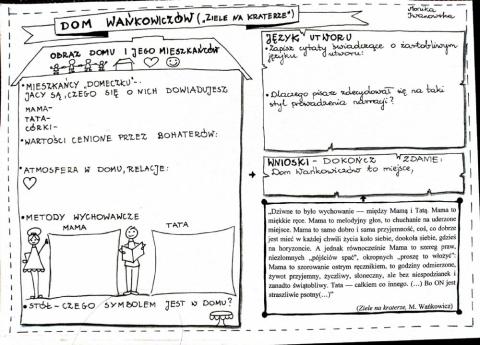 DOM WAŃKOWICZÓW („ZIELE NA KRATERZE")
Monika
Iwanowska
OBRAZ DOMU I JEGO MIESZKAŃCÓW
• MIESZKAŃCY „DOMECZKU" -
JACY SĄ, CZEGO SIĘ O NICH DOWIADUJESZ
MAMA-
TATA-
CÓRKI-
• WARTOŚCI CENIONE PRZEZ BOHATERÓW:
• ATMOSFERA W DOMU, RELACJE:
• METODY WYCHOWAWCZE
MAMA
TATA
• STÓŁ - CZEGO SYMBOLEM JEST W DOMU?
JĘZYK UTWORU
• Zapisz cytaty świadczące o żartobliwym
języku utworu:
• Dlaczego pisarz zdecydował się na taki
styl prowadzenia narracji?
WNIOSKI - DOKOŃCZ ZDANIE:
Dom Wańkowiczów to miejsce,
„Dziwne to było wychowanie — między Mamą i Tatą. Mama to
miękkie ręce. Mama to melodyjny głos, to chuchanie na uderzone
miejsce. Mama to samo dobro i sama przyjemność, coś, co dobrze
jest mieć w każdej chwili życia koło siebie, dookoła siebie, gdzieś
na horyzoncie. A jednak równocześnie Mama to szereg praw,
niezłomnych „pójściów spać", okropnych „proszę to włożyć":
Mama to szorowanie ostrym ręcznikiem, to godziny odmierzone,
żywot przyjemny, życzliwy, słoneczny, ale bez niespodzianek i
zanadto świątobliwy. Tata — całkiem co innego. (...) Bo ON jest
straszliwie psotny(...)"
(Ziele na kraterze, M. Wańkowicz)